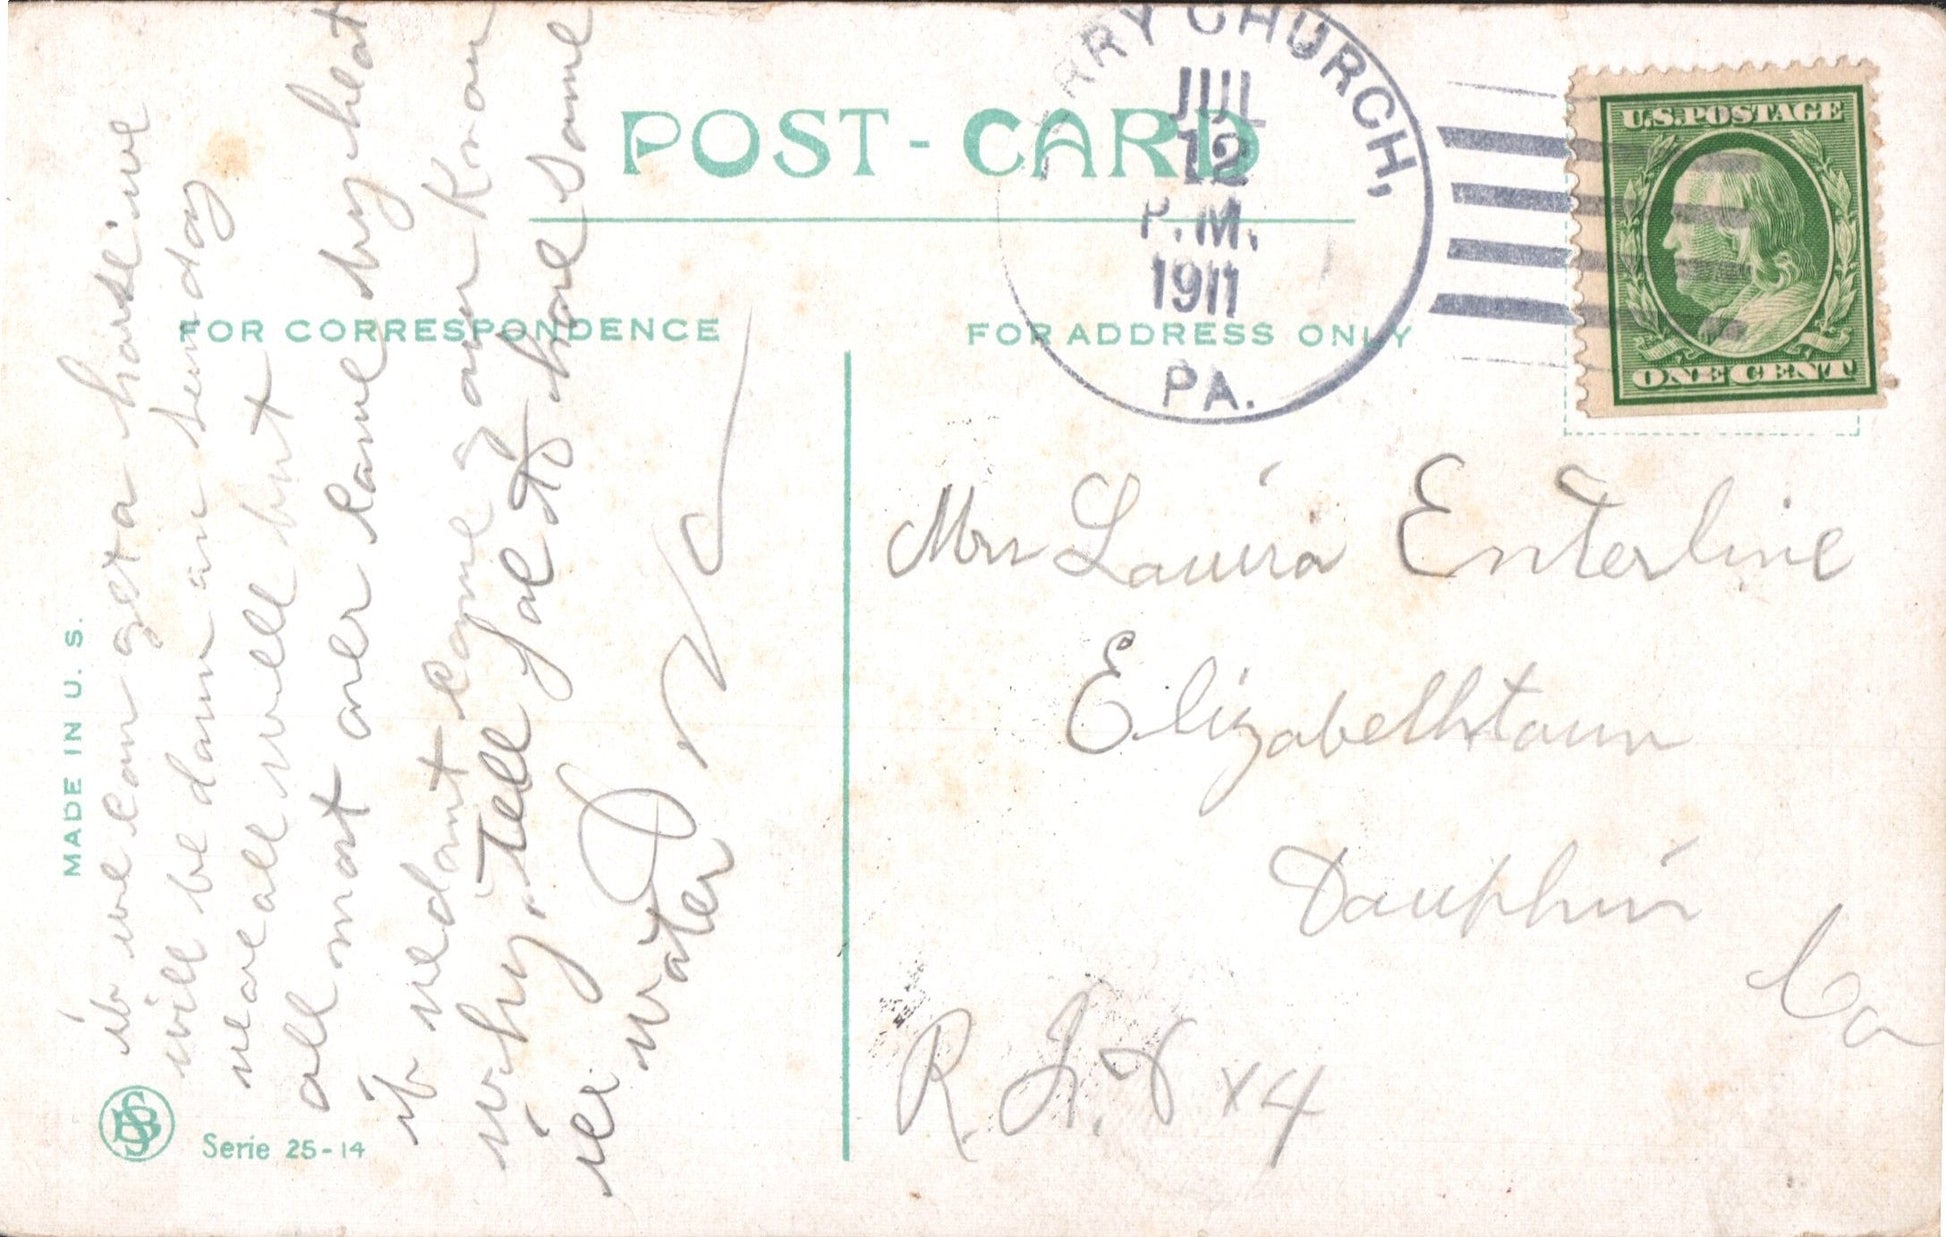 POST-CARD
RRY CHURCH,
JUL
12
P.M.
1911
PA.
U.S. POSTAGE
ONE CENT
FOR CORRESPONDENCE
FOR ADDRESS ONLY
MADE IN U. S.
if we can get a horse we
will be down on sunday
we are all well but
all most over come by heat
if we dont come you know
why. Tell Jalet to have some
ice water
Mrs Lauira Enterline
Elizabethtown
Dauphin
Co
R. F. D x 4
Serie 25-14